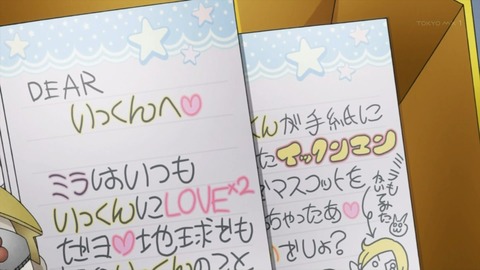 TOKYO MX 1
DEAR
いっくんへ♡
ミラはいつも
いっくんにLOVE×2
だヨ♡地球をも
いっくんのこと
くんが手紙に
たイックンマン
マスコットを
ちゃったあ♡
をしょ?
ミラも
かいてみた